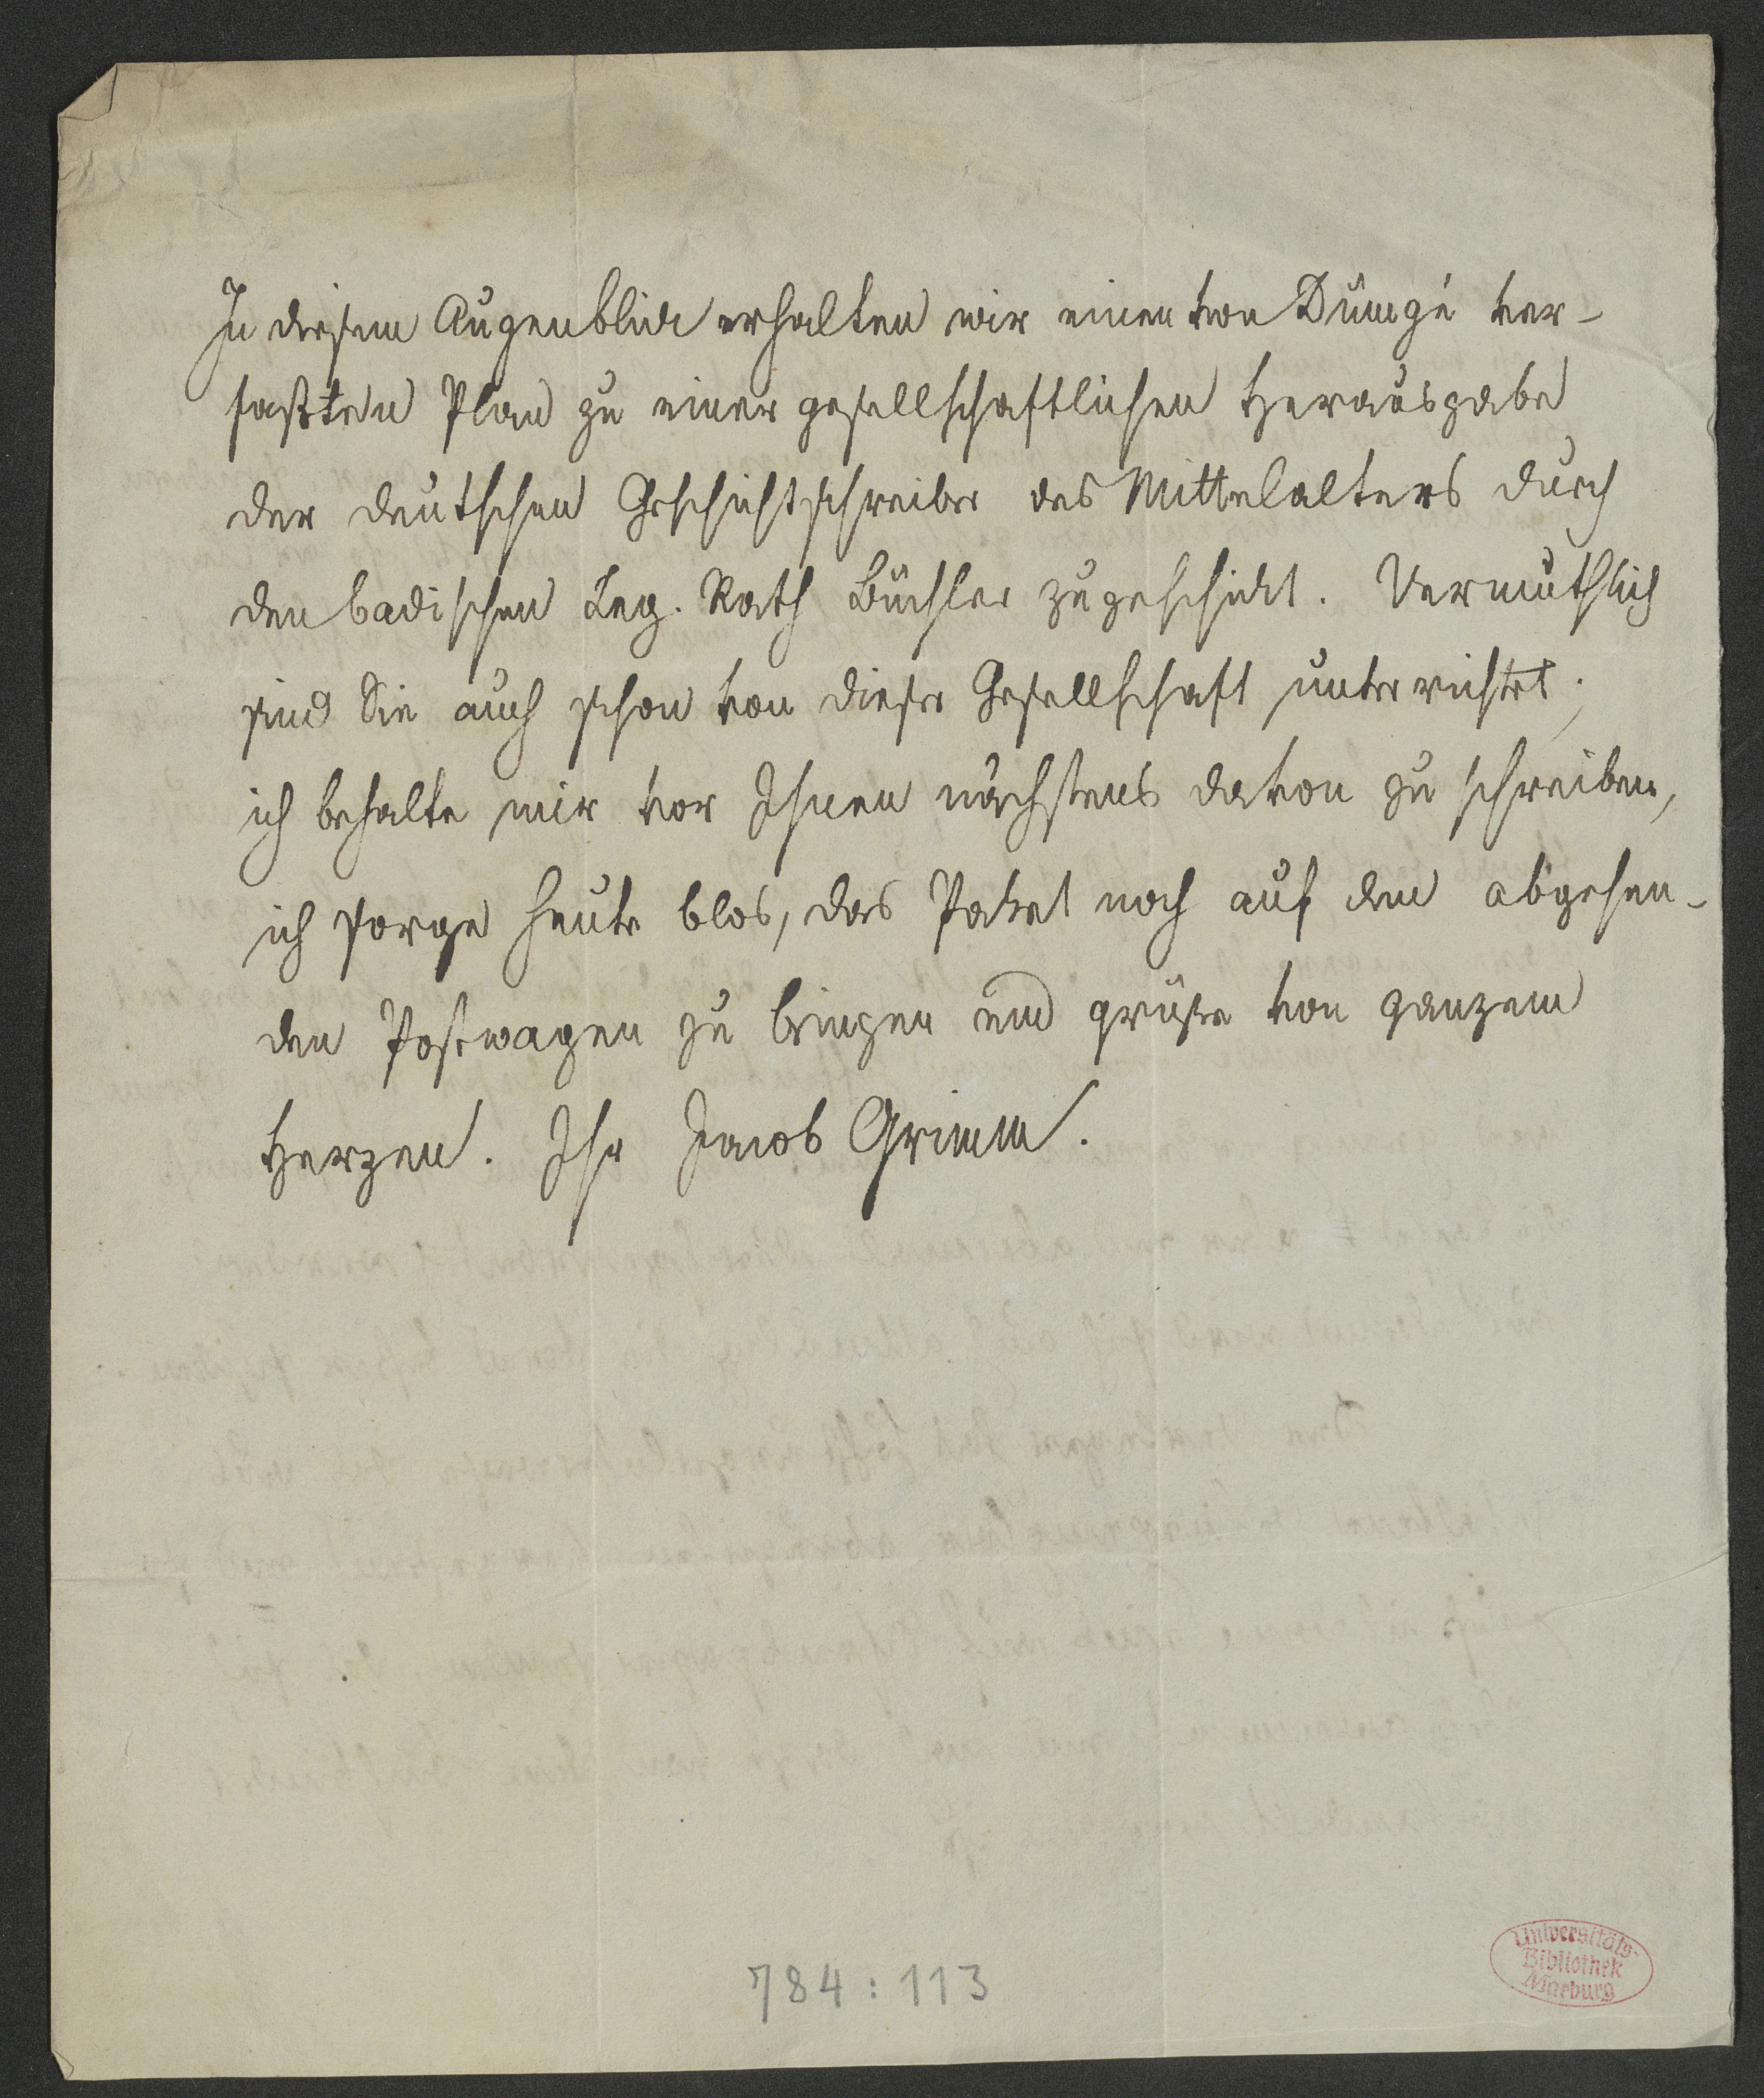 In diesem Augenblick erhalten wir einen von Dümgé ver-
faßten Plan zu einer gesellschaftlichen Herausgabe
der deutschen Geschichtschreiber des Mittelalters durch
den badischen Leg. Rath Büchler zugeschickt. Vermuthlich
sind Sie auch schon von dieser Gesellschaft unterrichtet;
ich behalte mir vor Ihnen nächstens davon zu schreiben,
ich sorge heute blos, das Paket noch auf den abgehen-
den Postwagen zu bringen und grüße von ganzem
Herzen. Ihr Jacob Grimm.
784:113
Universitäts-
Bibliothek
Marburg